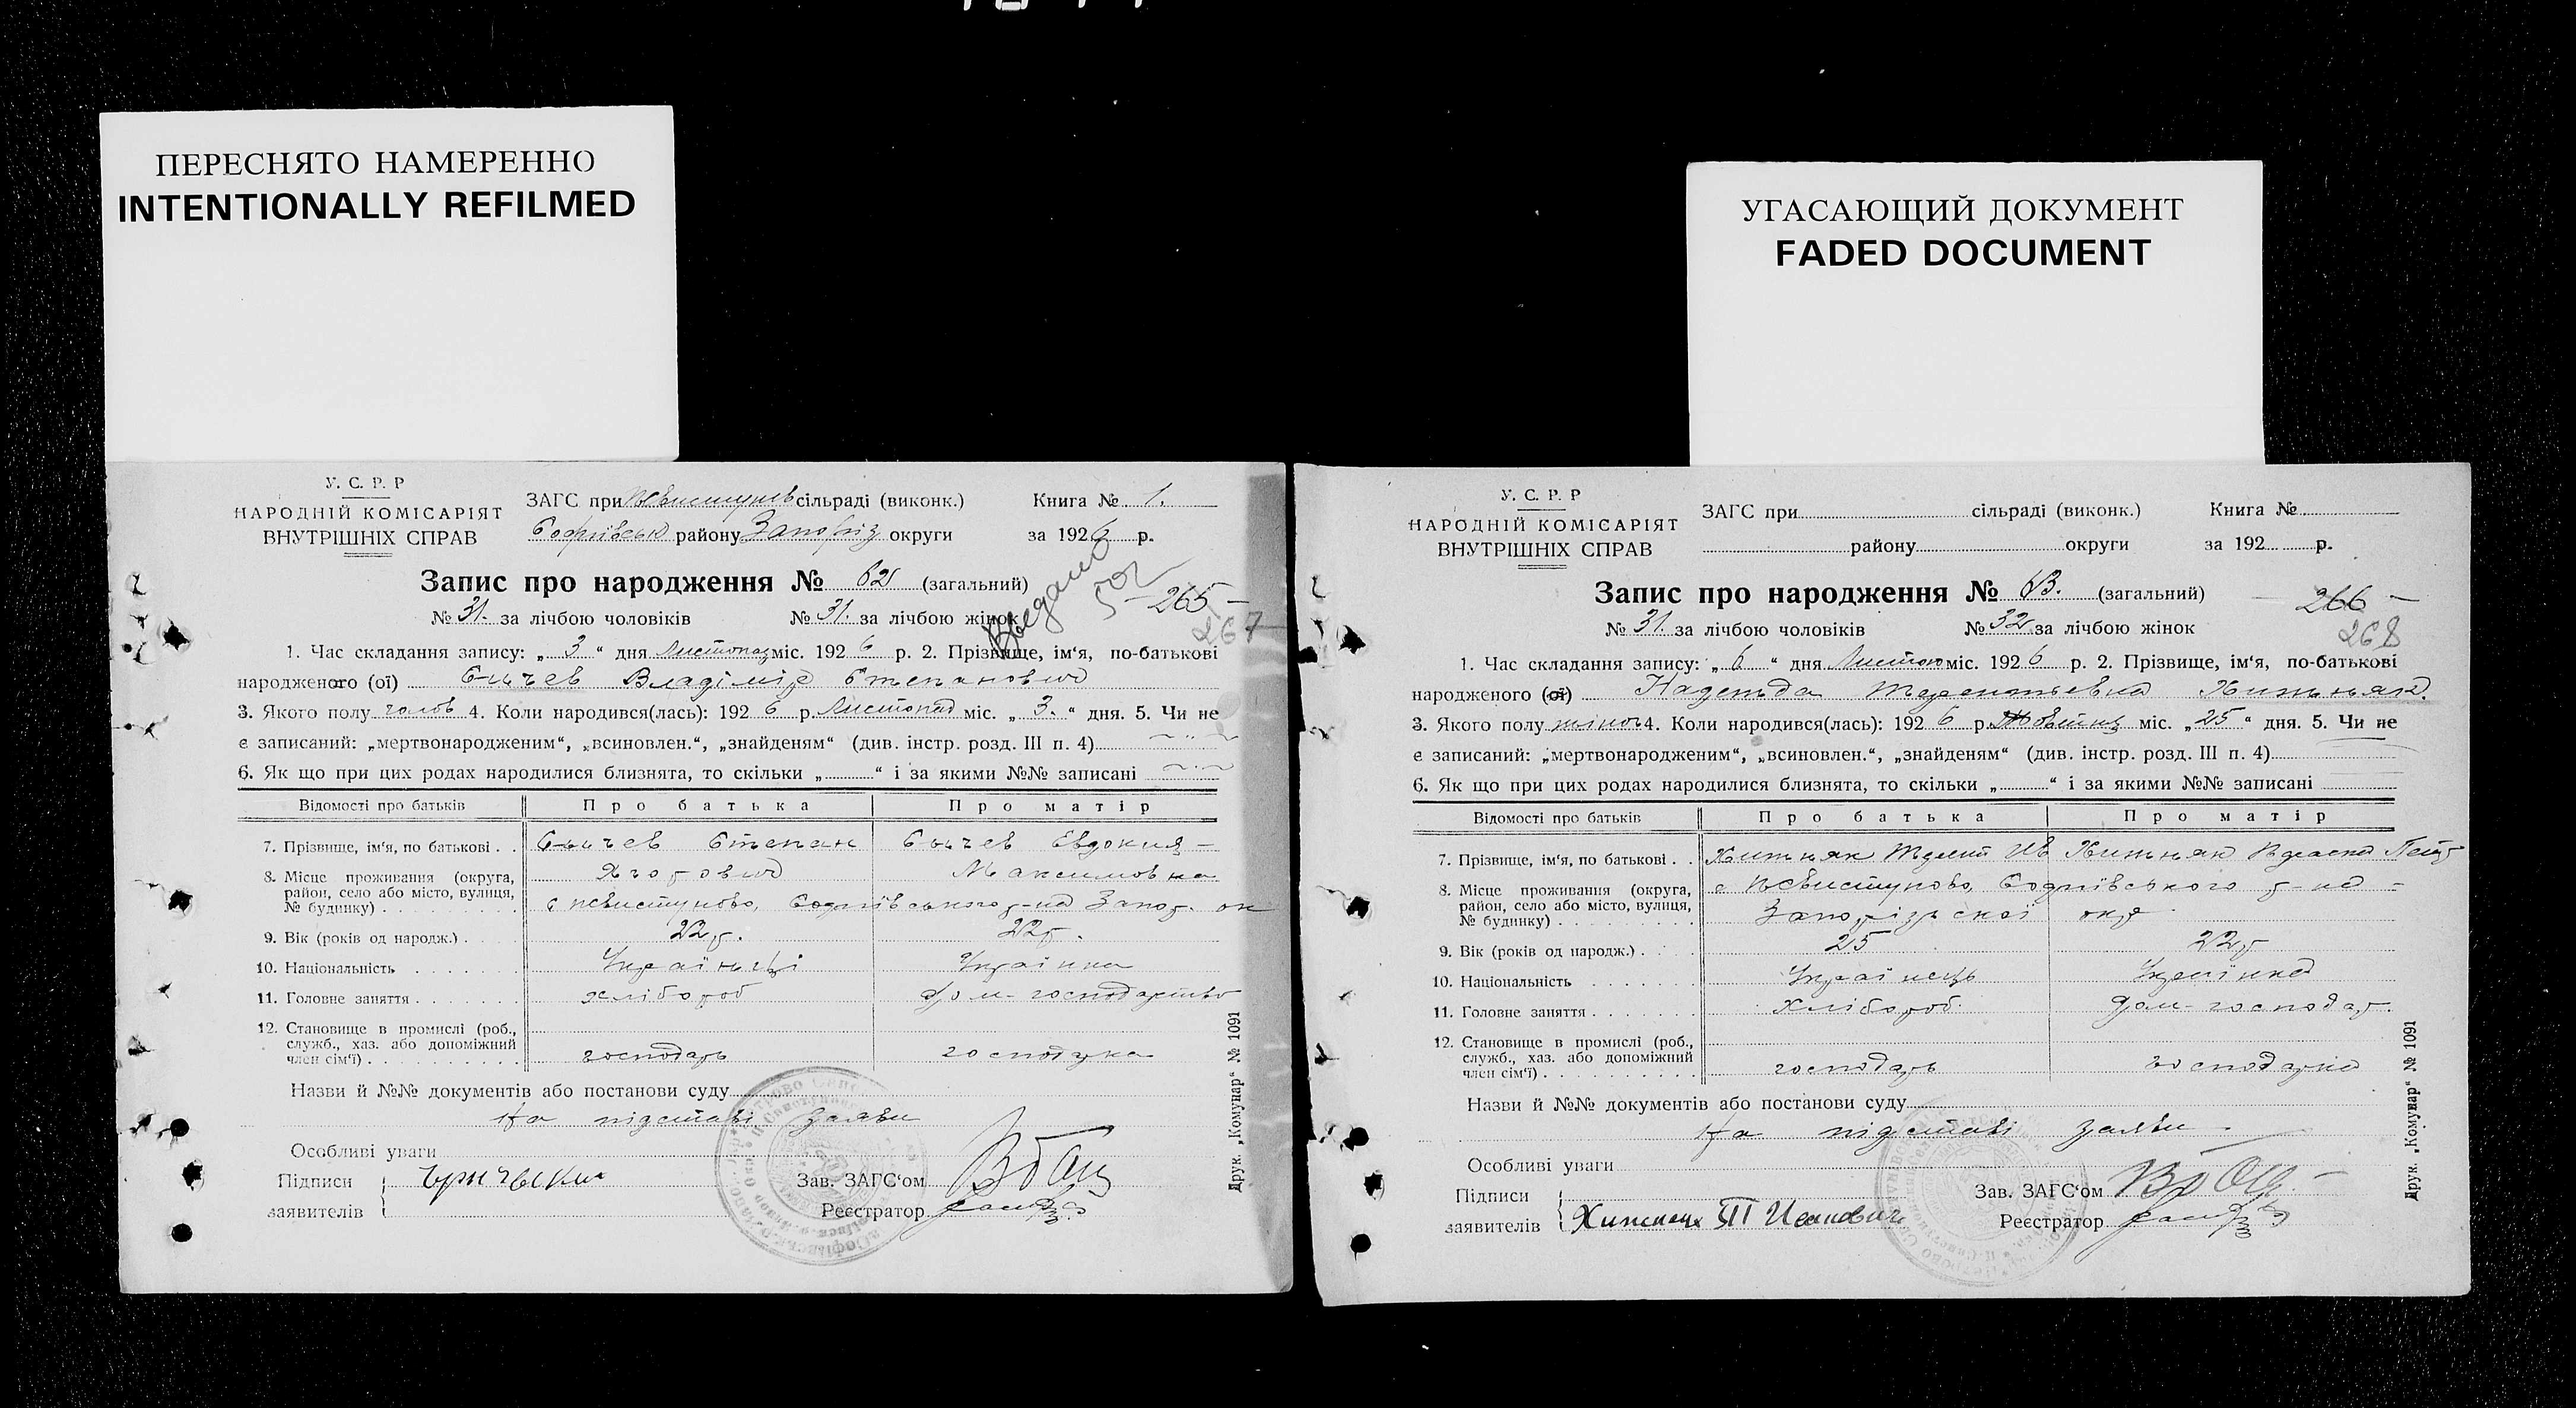 ПЕРЕСНЯТО НАМЕРЕННО
INTENTIONALLY REFILMED
УГАСАЮЩИЙ ДОКУМЕНТ
FADED DOCUMENT
У. С. Р. Р
НАРОДНІЙ КОМІСАРІЯТ
ВНУТРІШНІХ СПРАВ
ЗАГС при сільраді (виконк.) Книга № 1.
Софіївськ району Запоріз округи за 1926 р.
Запис про народження № 62 (загальний)
265
267
№ 31. за лічбою чоловіків № 31. за лічбою жінок
1. Час складання запису: „ 3 “ дня Листопад міс. 1926 р. 2. Прізвище, ім‘я, по-батькові
народженого (ої) Сычев Владімір Степанович
3. Якого полу чолов 4. Коли народився(лась): 1926 р. Листопад міс. „ 3. “ дня. 5. Чи не
є записаний: „мертвонародженим“, „всиновлен.“, „знайденям“ (див. інстр. розд. III п. 4)
6. Як що при цих родах народилися близнята, то скільки „ “ і за якими №№ записані
Відомості про батьків Про батька Про матір
7. Прізвище, ім‘я, по батькові . . Сычев Степан Сычев Евдокия
Максимовна
8. Місце проживання (округа,
район, село або місто, вулиця,
№ будинку) с Софіївського р-на Запор. ок
9. Вік (років од народж.) 22 р. 22 р.
10. Національність Українці Українка
11. Головне заняття хлібороб дом-господарство
12. Становище в промислі (роб.,
служб., хаз. або допоміжний
член сім‘ї) господарь господарка
Назви й №№ документів або постанови суду
На підставі заяви
Особливі уваги
Підписи
заявителів
Зав. ЗАГС‘ом
Реєстратор
Друк. „Комунар“ № 1091
У. С. Р. Р
НАРОДНІЙ КОМІСАРІЯТ
ВНУТРІШНІХ СПРАВ
ЗАГС при сільраді (виконк.) Книга №
району округи за 192 р.
Запис про народження № (загальний)
266
268
№ 31. за лічбою чоловіків № 32 за лічбою жінок
1. Час складання запису: „ 6 “ дня міс. 1926 р. 2. Прізвище, ім‘я, по-батькові
народженого (ої) Надежда Терентьевна Житняк.
3. Якого полу жіноч 4. Коли народився(лась): 1926 р. Жовтня міс. „ 25 “ дня. 5. Чи не
є записаний: „мертвонародженим“, „всиновлен.“, „знайденям“ (див. інстр. розд. III п. 4)
6. Як що при цих родах народилися близнята, то скільки „ “ і за якими №№ записані
Відомості про батьків Про батька Про матір
7. Прізвище, ім‘я, по батькові . . Житняк Ив Житняк
8. Місце проживання (округа,
район, село або місто, вулиця,
№ будинку) с Софіївського р-на
Запорізської окр
9. Вік (років од народж.) 25 22 р
10. Національність Українець Українка
11. Головне заняття Хлібороб. Дом-господар.
12. Становище в промислі (роб.,
служб., хаз. або допоміжний
член сім‘ї) господарь господарка
Назви й №№ документів або постанови суду
На підставі заяви
Особливі уваги
Підписи
заявителів Иванович
Зав. ЗАГС‘ом
Реєстратор
Друк. „Комунар“ № 1091